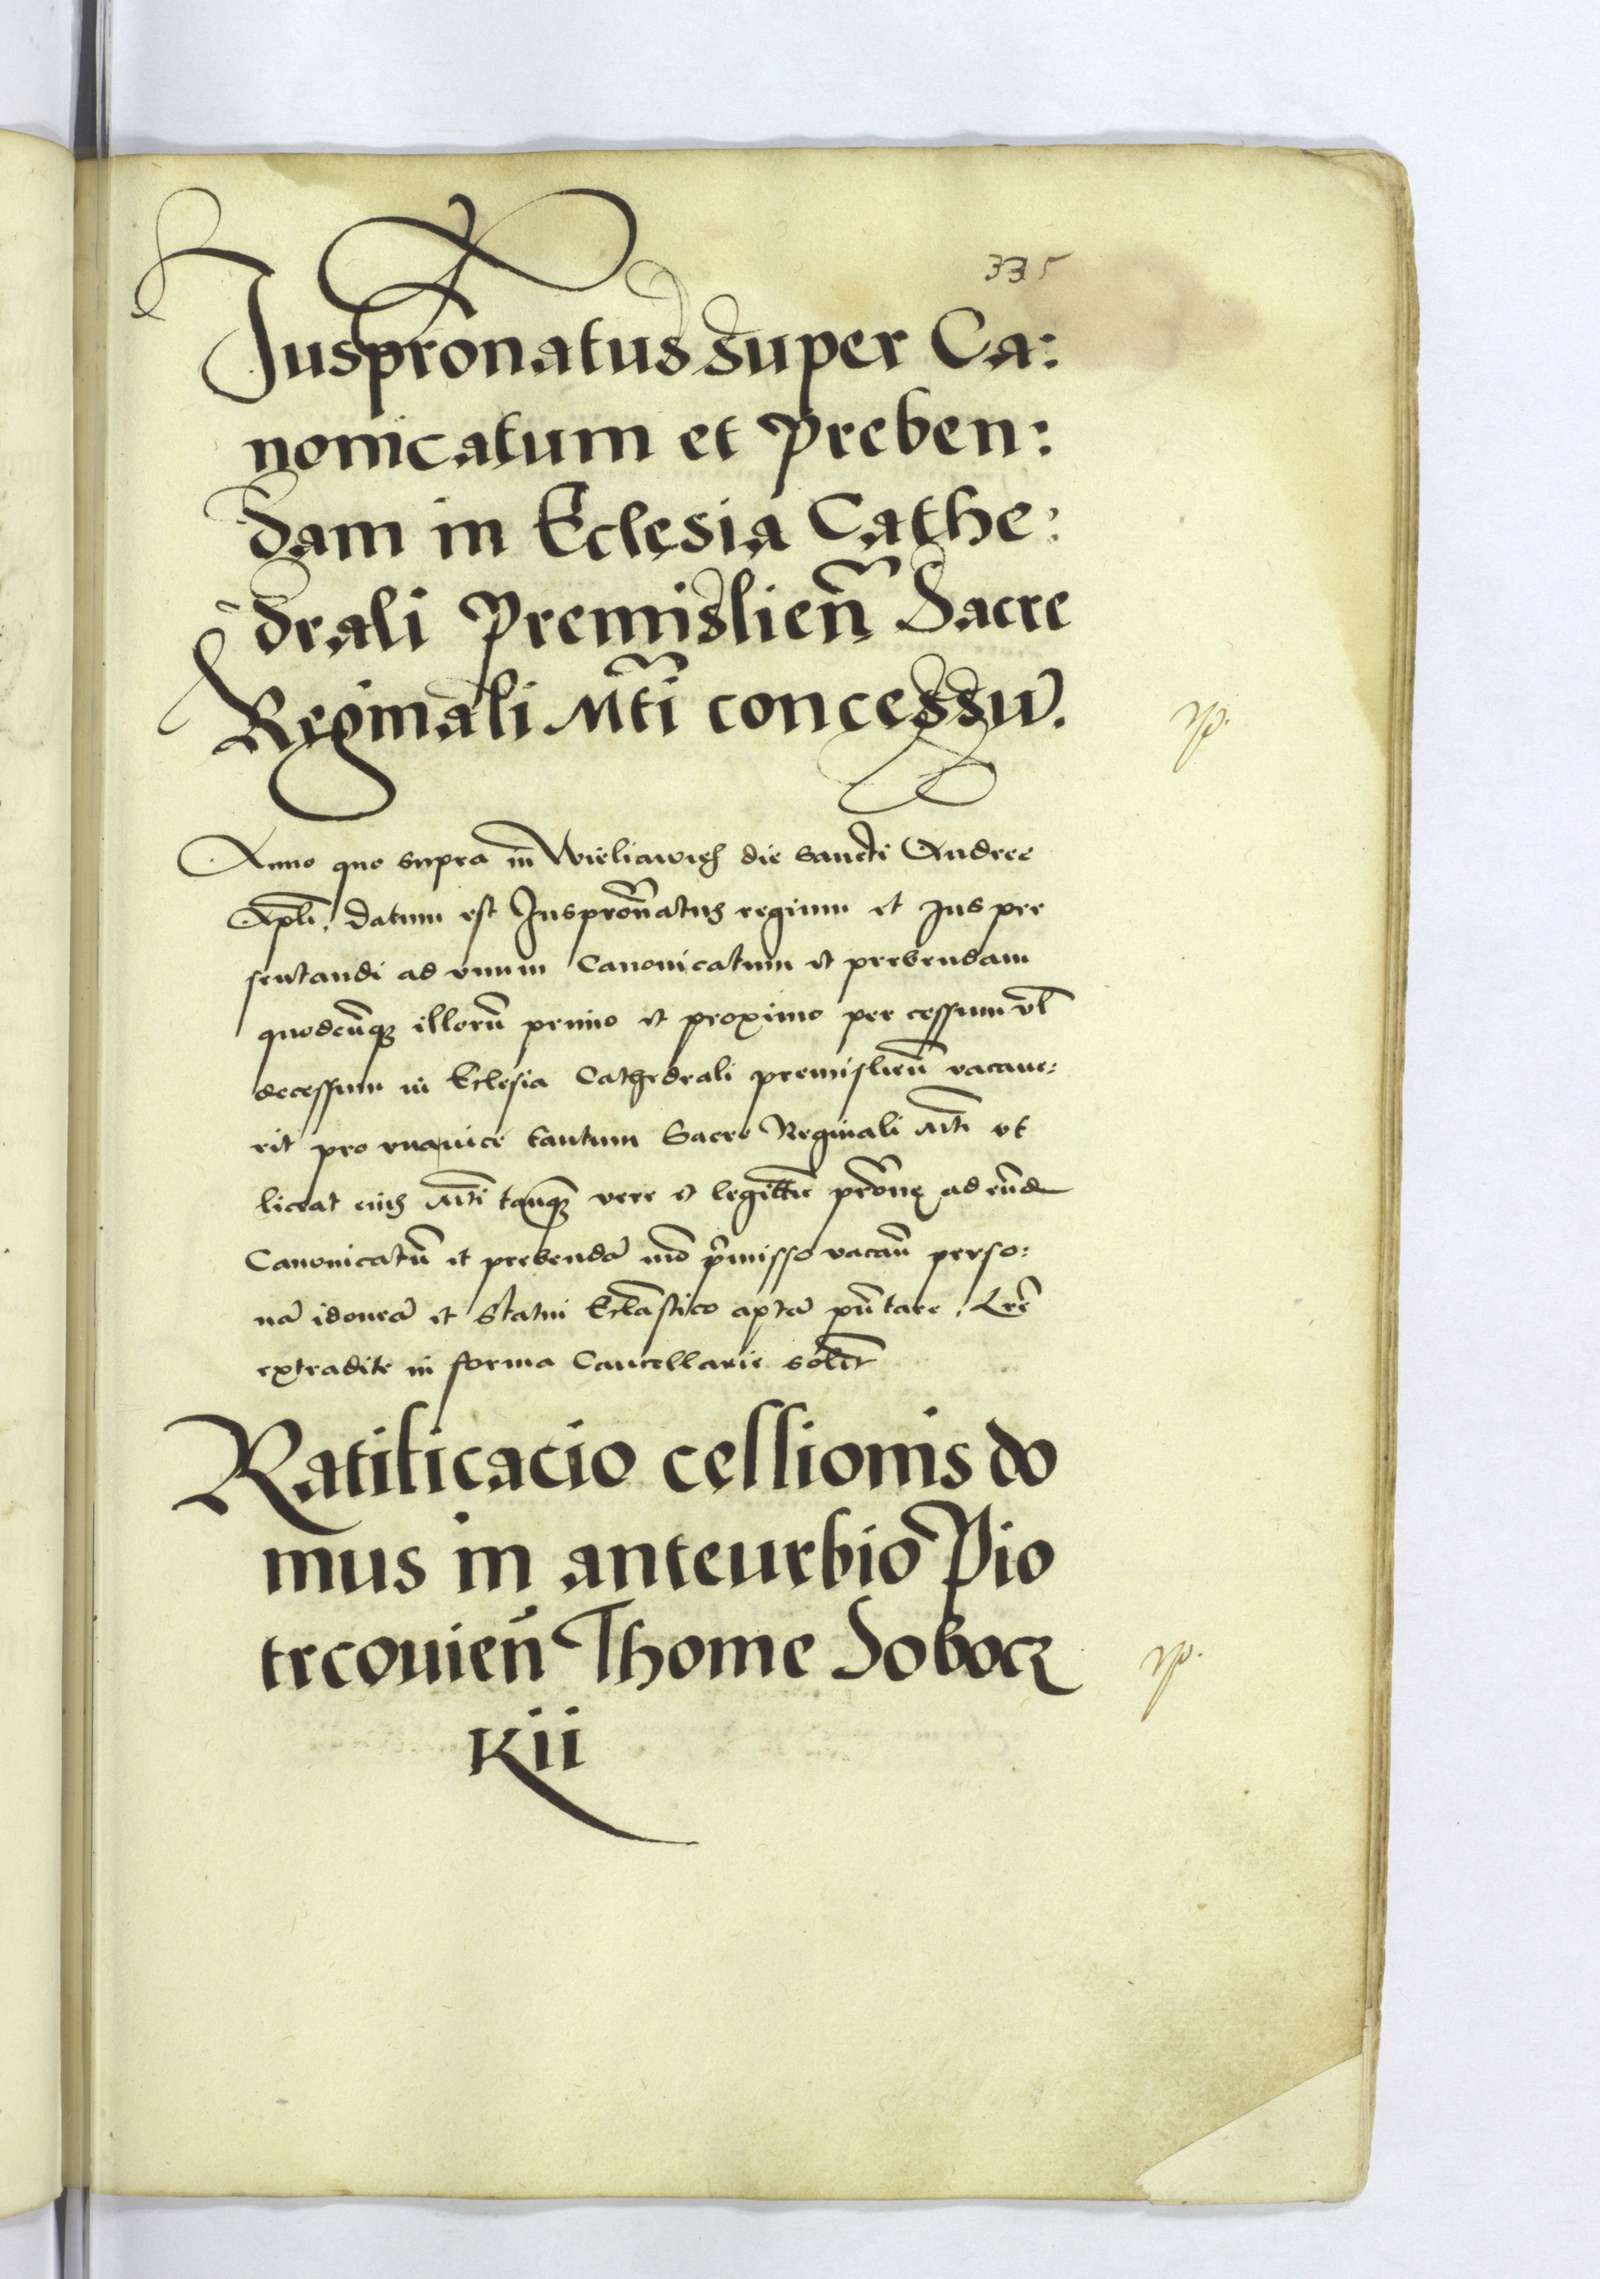 335
Juspr̃onatus super Ca:
nonicatum et Preben:
dam in Eclesia Cathe:
drali Premislieñ Sacre
Reginali Mt̃i concessu͂.
Anno quo supra in Wieliawies die sancti Andree
Apl̃i. datum est Juspr̃onatus regium et Jus pre
sentandi ad vnum Canonicatum et prebendam
quodcũq illorũ primo et proximo per cessum vl̃
decessum in Eclesia Cathedrali premislieñ vacaue:
rit pro vnauice tantum Sacre Reginali Mt̃i vt
liceat eius Mt̃i tanq̃ vere et legittĩe pr̃onę ad eũd
Canonicatũ et prebendã mõ p̃misso vacañ perso:
nã idoneã et Statui Ecl̃astico aptã pñtare. Lr̃e
extradite in forma Cancellarie solit̃
Ratificacio cessionis do
mus in anteurbio Pio
trcouieñ Thome Sobocz
kii